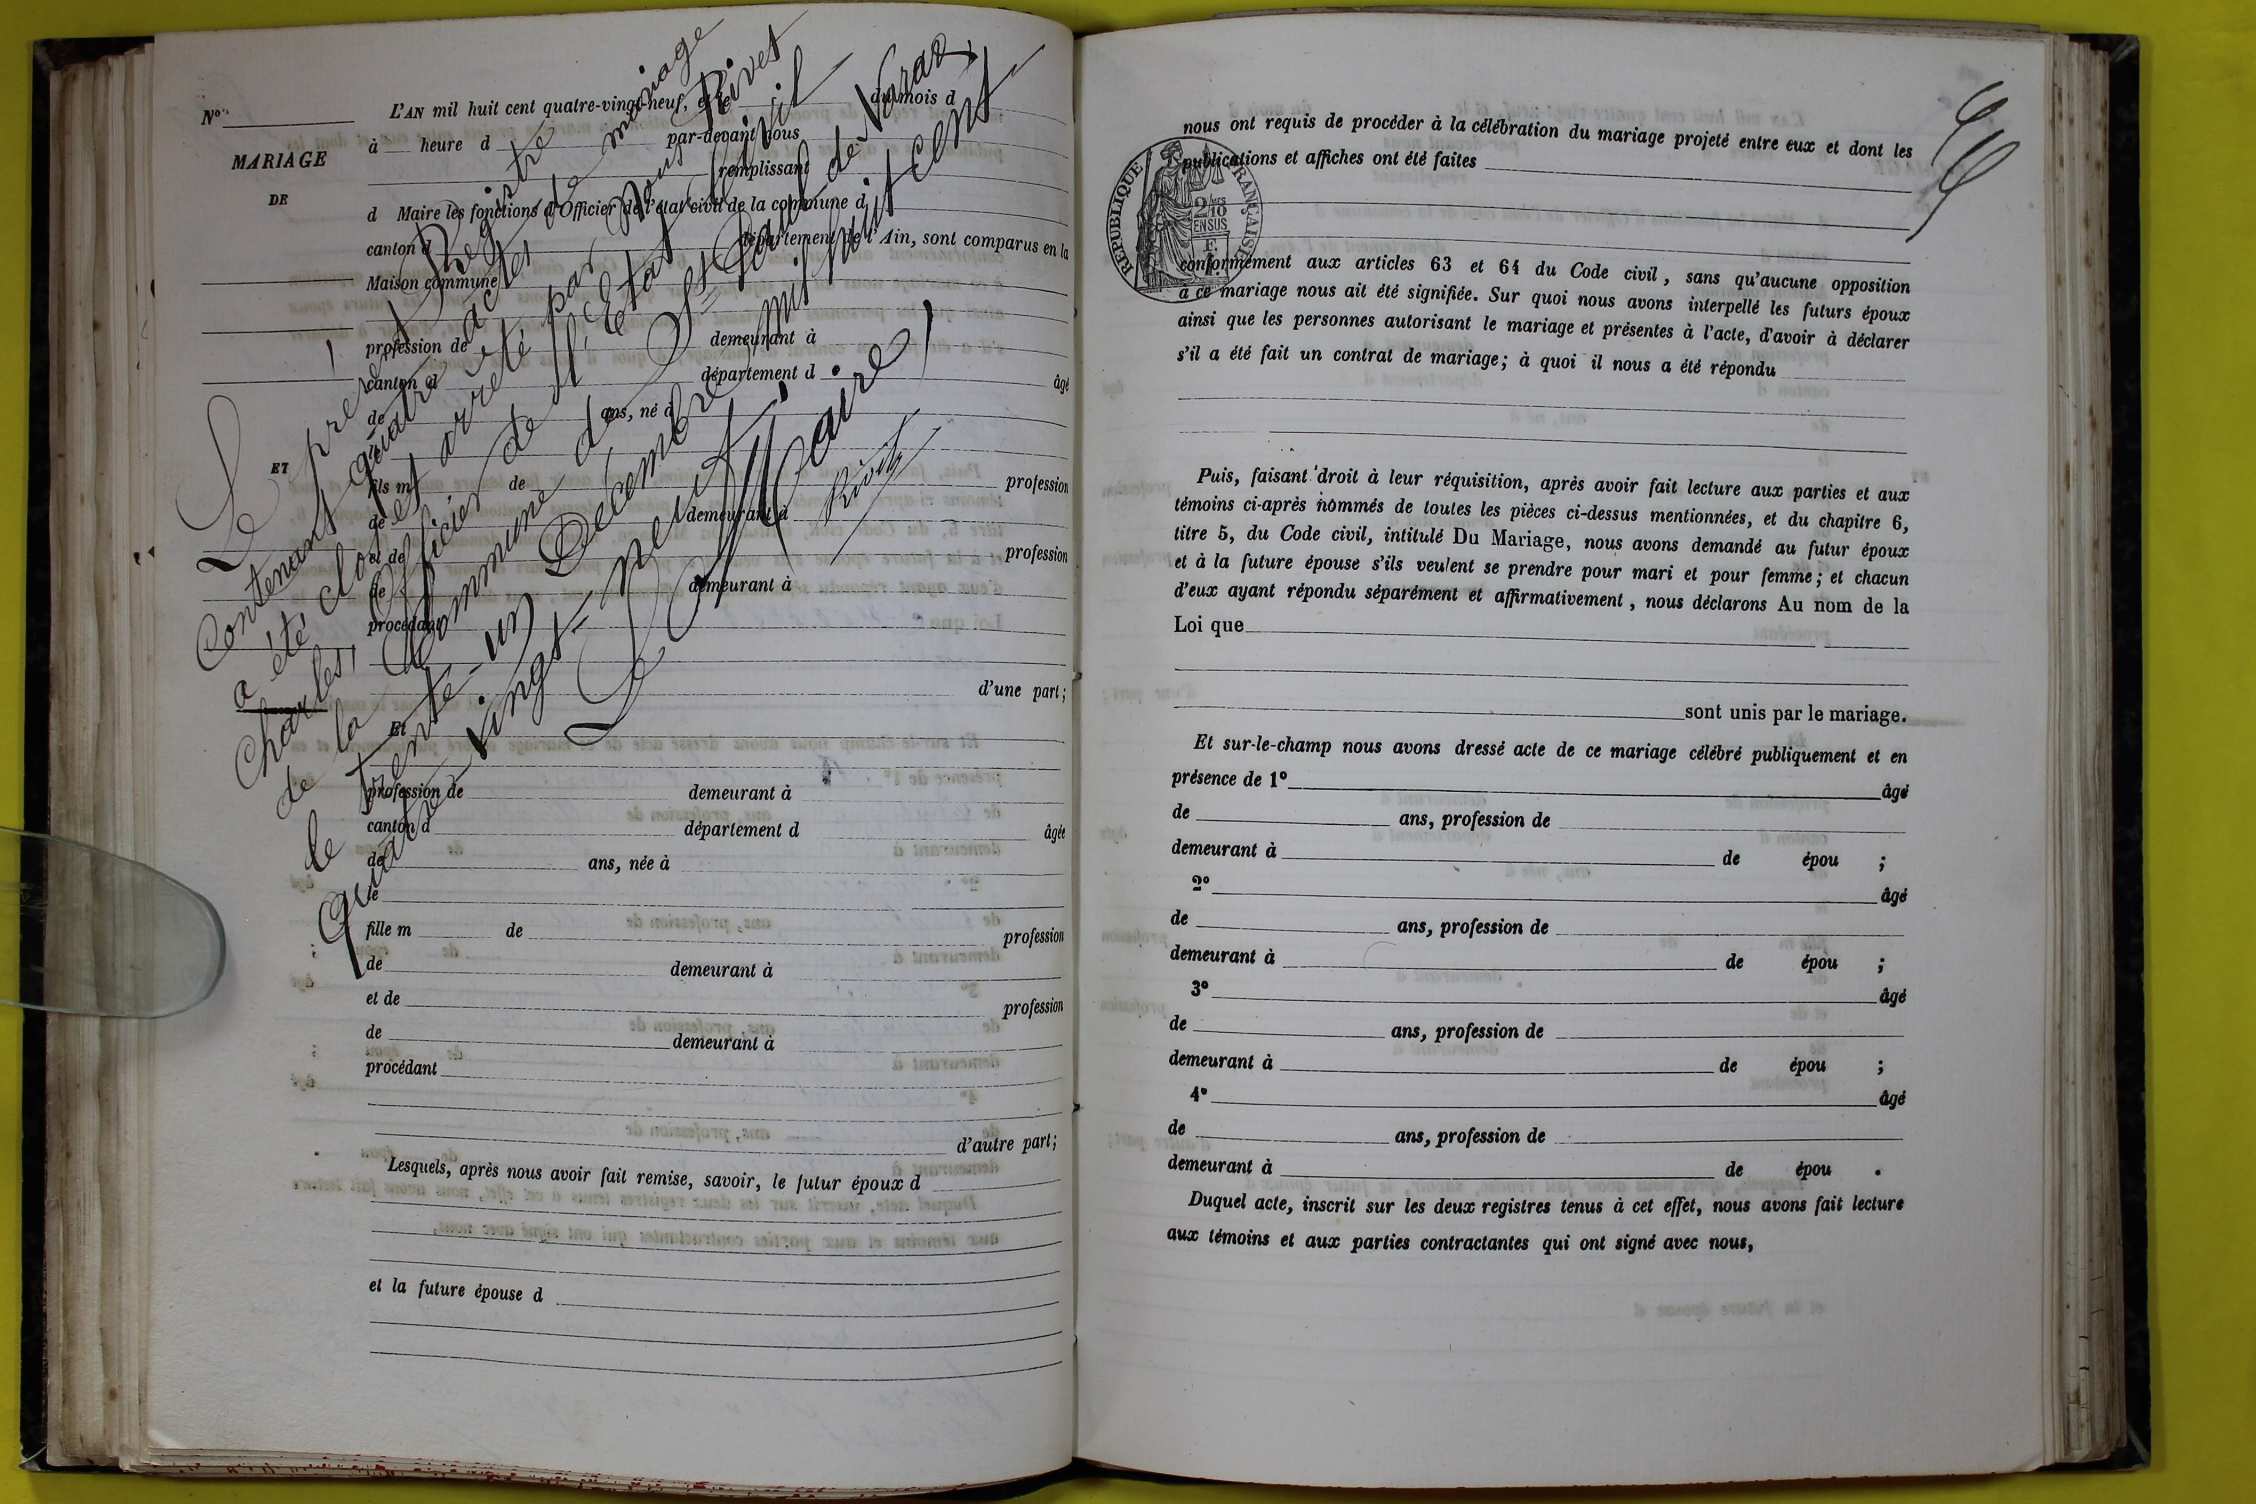 No
MARIAGE
DE
ET
L'AN mil huit cent quatre-vingt-neuf, et le du mois d
à heure d par-devant nous
remplissant
d Maire les fonctions d'Officier de l'état civil de la commune d
canton d département de l'Ain, sont comparus en la
Maison commune
profession de demeurant à
canton d département d âgé
de ans, né à
fils m de profession
de demeurant à
et de profession
de demeurant à
procédant
d'une part;
Et
profession de demeurant à
canton d département d âgée
de ans, née à
le
fille m de profession
de demeurant à
et de profession
de demeurant à
procédant
d'autre part;
Lesquels, après nous avoir fait remise, savoir, le futur époux d
et la future épouse d
Le présent Registre
Contenant quatre actes de mariage
a été clos et arrêté par Nous Rivet
Charles, Officier de l'Etat Civil
de la Commune de St Paul de Varax,
le trente-un Décembre, mil huit cent
quatre vingt-neuf.
Le Maire,
Rivet
nous ont requis de procéder à la célébration du mariage projeté entre eux et dont les
publications et affiches ont été faites
RÉPUBLIQUE FRANÇAISE
2/10
EN SUS
conformément aux articles 63 et 64 du Code civil, sans qu'aucune opposition
à ce mariage nous ait été signifiée. Sur quoi nous avons interpellé les futurs époux
ainsi que les personnes autorisant le mariage et présentes à l'acte, d'avoir à déclarer
s'il a été fait un contrat de mariage; à quoi il nous a été répondu
Puis, faisant droit à leur réquisition, après avoir fait lecture aux parties et aux
témoins ci-après nommés de toutes les pièces ci-dessus mentionnées, et du chapitre 6,
titre 5, du Code civil, intitulé Du Mariage, nous avons demandé au futur époux
et à la future épouse s'ils veulent se prendre pour mari et pour femme; et chacun
d'eux ayant répondu séparément et affirmativement, nous déclarons Au nom de la
Loi que
sont unis par le mariage.
Et sur-le-champ nous avons dressé acte de ce mariage célébré publiquement et en
présence de 1° âgé
de ans, profession de
demeurant à de épou ;
2° âgé
de ans, profession de
demeurant à de épou ;
3° âgé
de ans, profession de
demeurant à de épou ;
4° âgé
de ans, profession de
demeurant à de épou .
Duquel acte, inscrit sur les deux registres tenus à cet effet, nous avons fait lecture
aux témoins et aux parties contractantes qui ont signé avec nous,